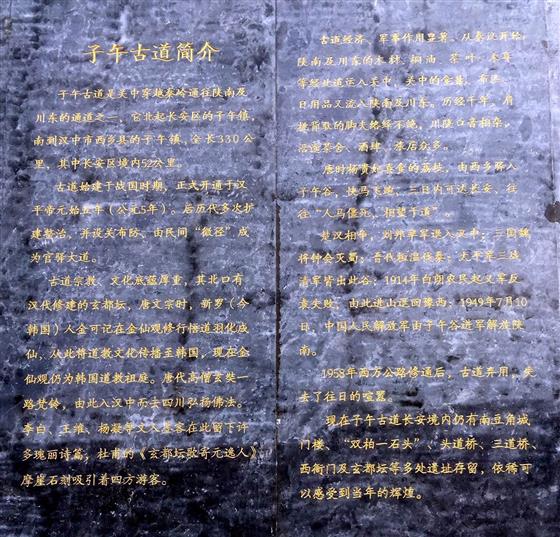 子午古道简介
子午古道是关中穿越秦岭通往陕南及
川东的通道之一，它北起长安区的子午镇，
南到汉中市西乡县的子午镇，全长330公
里，其中长安区境内52公里。
古道始建于战国时期，正式开通于汉
平帝元始五年（公元5年）。后历代多次扩
建整治，并设关布防，由民间“微径”成
为官驿大道。
古道宗教、文化底蕴厚重，其北口有
汉代修建的玄都坛，唐文宗时，新罗（今
韩国）人金可记在金仙观修行悟道羽化成
仙，从此将道教文化传播至韩国，现在金
仙观仍为韩国道教祖庭。唐代高僧玄奘一
路梵铃，由此入汉中而去四川弘扬佛法。
李白、王维、杨凝等文人墨客在此留下许
多瑰丽诗篇，杜甫的《玄都坛歌寄元逸人》
摩崖石刻吸引着四方游客。
古道经济、军事作用显著，从秦汉开始，
陕南及川东的木材、桐油、茶叶、
等经此道运入关中，关中的食盐、布匹、
日用品又流入陕南及川东，历经千年，肩
挑背驮的脚夫络绎不绝，川陕口音相杂，
沿途茶舍、酒肆、客店众多。
唐时杨贵妃喜食的荔枝，由西乡驿入
子午谷，快马飞驰，三日内可达长安，往
往“人马僵死，相望于道”。
楚汉相争，刘邦率军退入汉中；三国魏
将钟会灭蜀；晋代桓温伐秦；太平军三战
清军皆出此谷；1914年白朗农民起义军反
袁失败，由此进山逶回豫西；1949年7月10
日，中国人民解放军由子午谷进军解放陕
南。
1958年西万公路修通后，古道弃用，失
去了往日的喧嚣。
现在子午古道长安境内仍有南豆角城
门楼、“双拍一石头”、头道桥、三道桥、
西衙门及玄都坛等多处遗址存留，依稀可
以感受到当年的辉煌。